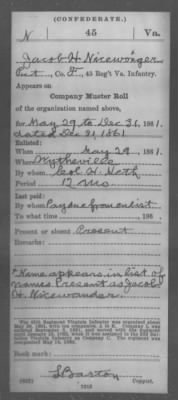 (CONFEDERATE.)
N 45 Va.
Jacob H. Nicewonger
Pvt., Co. F, 45 Reg't Va. Infantry.
Appears on
Company Muster Roll
of the organization named above,
for May 29 to Dec 31, 1861.
dated Dec 31, 1861
Enlisted:
When May 29, 1861.
Where Wytheville
By whom Col. H. Heth
Period 12 Mo.
Last paid:
By whom Pay due from enlist
To what time , 186 .
Present or absent Present
Remarks:
*Name appears in list of
names Present as Jacob
H. Nicewander.
Book mark:
L Barton
Copyist.